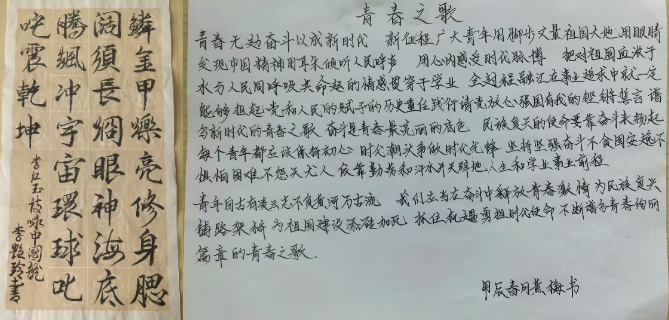 鱗金甲爍亮修身腮
闊須長綢眼神海底
騰颯冲宇宙環球叱
咤震乾坤
李红玉枝咏中國龍
李艷玲書
青春之歌
青春无畏奋斗以成新时代 新征程广大青年用脚步丈量祖国大地 用眼睛
发现中国精神 用耳朵倾听人民呼声 用心内感受时代脉搏 把对祖国血浓于
水与人民同呼吸共命运的情感贯穿于学业 全过程融汇在事业追求中就一定
能够担起党和人民的赋予的历史重任践行请党放心强国有我的铿锵誓言 谱
写新时代的青春之歌 奋斗是青春最亮丽的底色 民族复兴的使命要靠奋斗来扬起
每个青年都应该保持初心 时代潮头争做时代先锋 坚持坚强奋斗不贪图安逸不
惧怕困难不怨天尤人 依靠勤劳和汗水开天辟地人生和学业事业前程
青年自古有凌云志不负黄河万古流 我们应当在奋斗中释放青春激情为民族复兴
铺路架桥为祖国建设添砖加瓦 抓住机遇勇担时代使命不断谱写青春绚丽
篇章的青春之歌
甲辰春月黄梅书